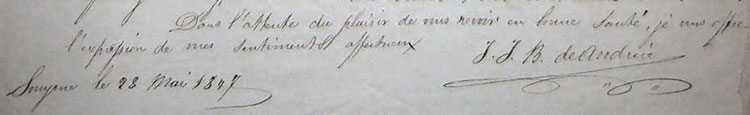 Dans l'attente du plaisir de vous revoir en bonne santé, je vous offre
l'expression de mes sentiments affectueux
J. J. B. de Andria
Smyrne le 28 Mai 1847